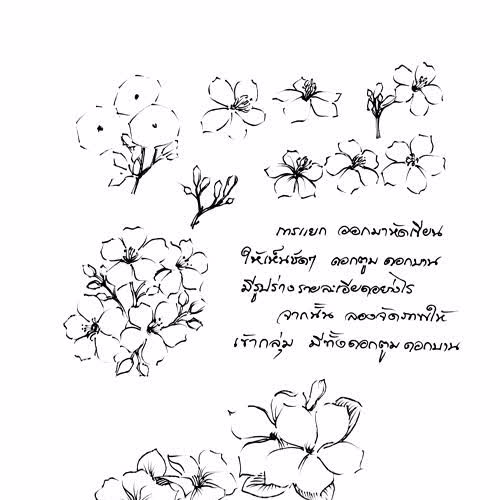 การแยก ออกมาหัดเขียน
ให้เห็นชัดๆ ดอกตูม ดอกบาน
มีรูปร่างรายละเอียดอย่างไร
จากนั้น ลองจัดภาพให้
เข้ากลุ่ม มีทั้งดอกตูม ดอกบาน